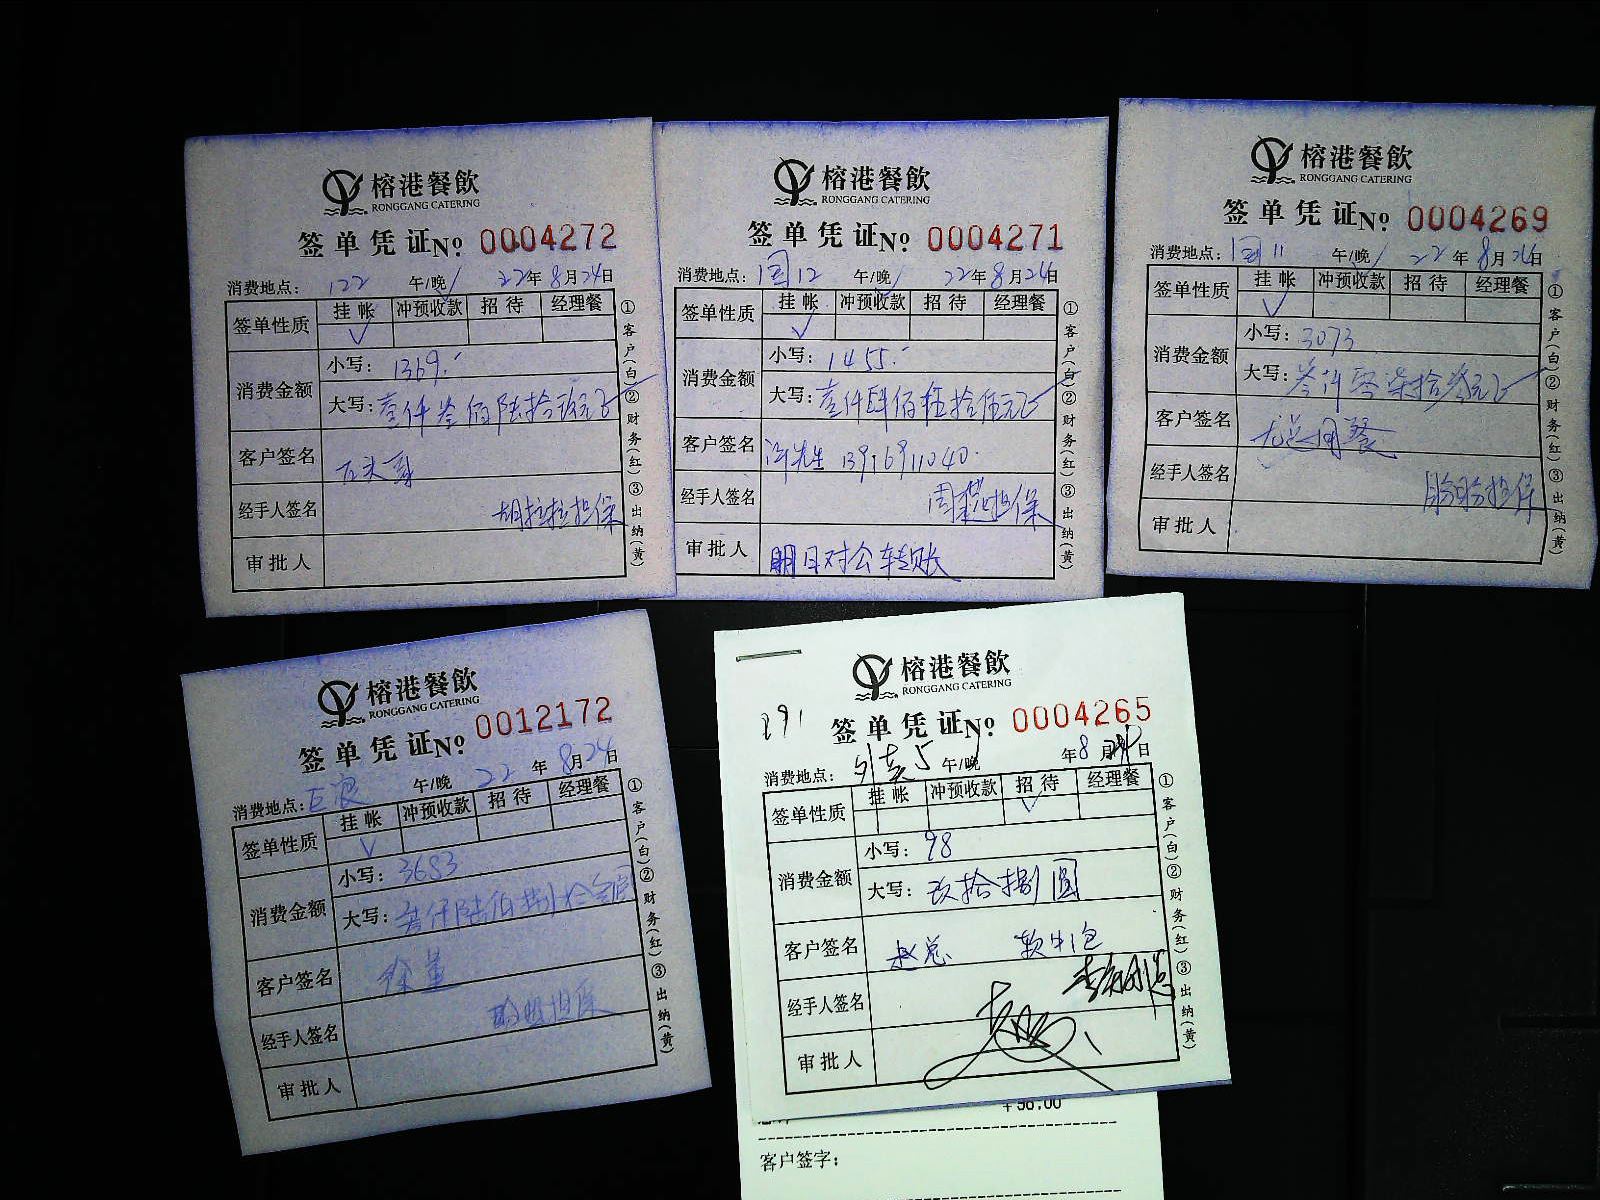 榕港餐飲
RONGGANG CATERING
签单凭证No 0004272
消费地点：122 午/晚 22年8月24日
签单性质 挂帐 冲预收款 招待 经理餐
✓
消费金额 小写：1369.-
大写：壹仟叁佰陆拾玖元正
客户签名
经手人签名 胡拉拉担保
审批人
①客户(白)②财务(红)③出纳(黄)
榕港餐飲
RONGGANG CATERING
签单凭证No 0004271
消费地点：国12 午/晚 22年8月24日
签单性质 挂帐 冲预收款 招待 经理餐
✓
消费金额 小写：1455.-
大写：壹仟肆佰伍拾伍元正
客户签名 许先生 13916911040.
经手人签名 周超担保
审批人 明日对公转账
①客户(白)②财务(红)③出纳(黄)
榕港餐飲
RONGGANG CATERING
签单凭证No 0004269
消费地点：国11 午/晚 22年8月24日
签单性质 挂帐 冲预收款 招待 经理餐
✓
消费金额 小写：3073
大写：叁仟零柒拾叁元正
客户签名 尤总用餐
经手人签名 盼盼担保
审批人
①客户(白)②财务(红)③出纳(黄)
榕港餐飲
RONGGANG CATERING
签单凭证No 0012172
消费地点： 午/晚 22年8月24日
签单性质 挂帐 冲预收款 招待 经理餐
✓
消费金额 小写：3683
大写：叁仟陆佰捌拾叁圆
客户签名 徐董
经手人签名 盼盼担保
审批人
①客户(白)②财务(红)③出纳(黄)
榕港餐飲
RONGGANG CATERING
291
签单凭证No 0004265
消费地点： 5 午/晚 年8月24日
签单性质 挂帐 冲预收款 招待 经理餐
✓
消费金额 小写：98
大写：玖拾捌圆
客户签名 赵总 软中1包
经手人签名
审批人
①客户(白)②财务(红)③出纳(黄)
客户签字：